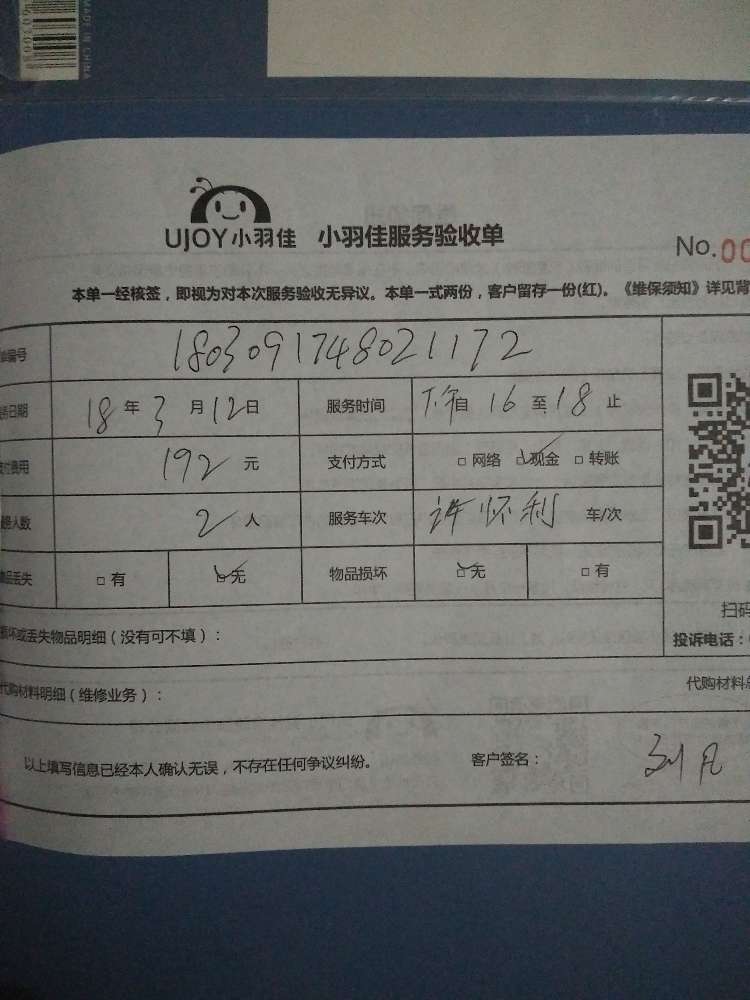 MADE IN CHINA
UJOY小羽佳 小羽佳服务验收单
No.00
本单一经核签，即视为对本次服务验收无异议。本单一式两份，客户留存一份(红)。《维保须知》详见背
编号 1803091748021172
务日期 18年3月12日 服务时间 下午自16至18止
支付费用 192元 支付方式 □网络 ☑现金 □转账
人数 2人 服务车次 许怀利 车/次
物品丢失 □有 ☑无 物品损坏 ☑无 □有
扫码
损坏或丢失物品明细（没有可不填）： 投诉电话：
代购材料明细（维修业务）： 代购材料总
以上填写信息已经本人确认无误，不存在任何争议纠纷。 客户签名： 刘凡